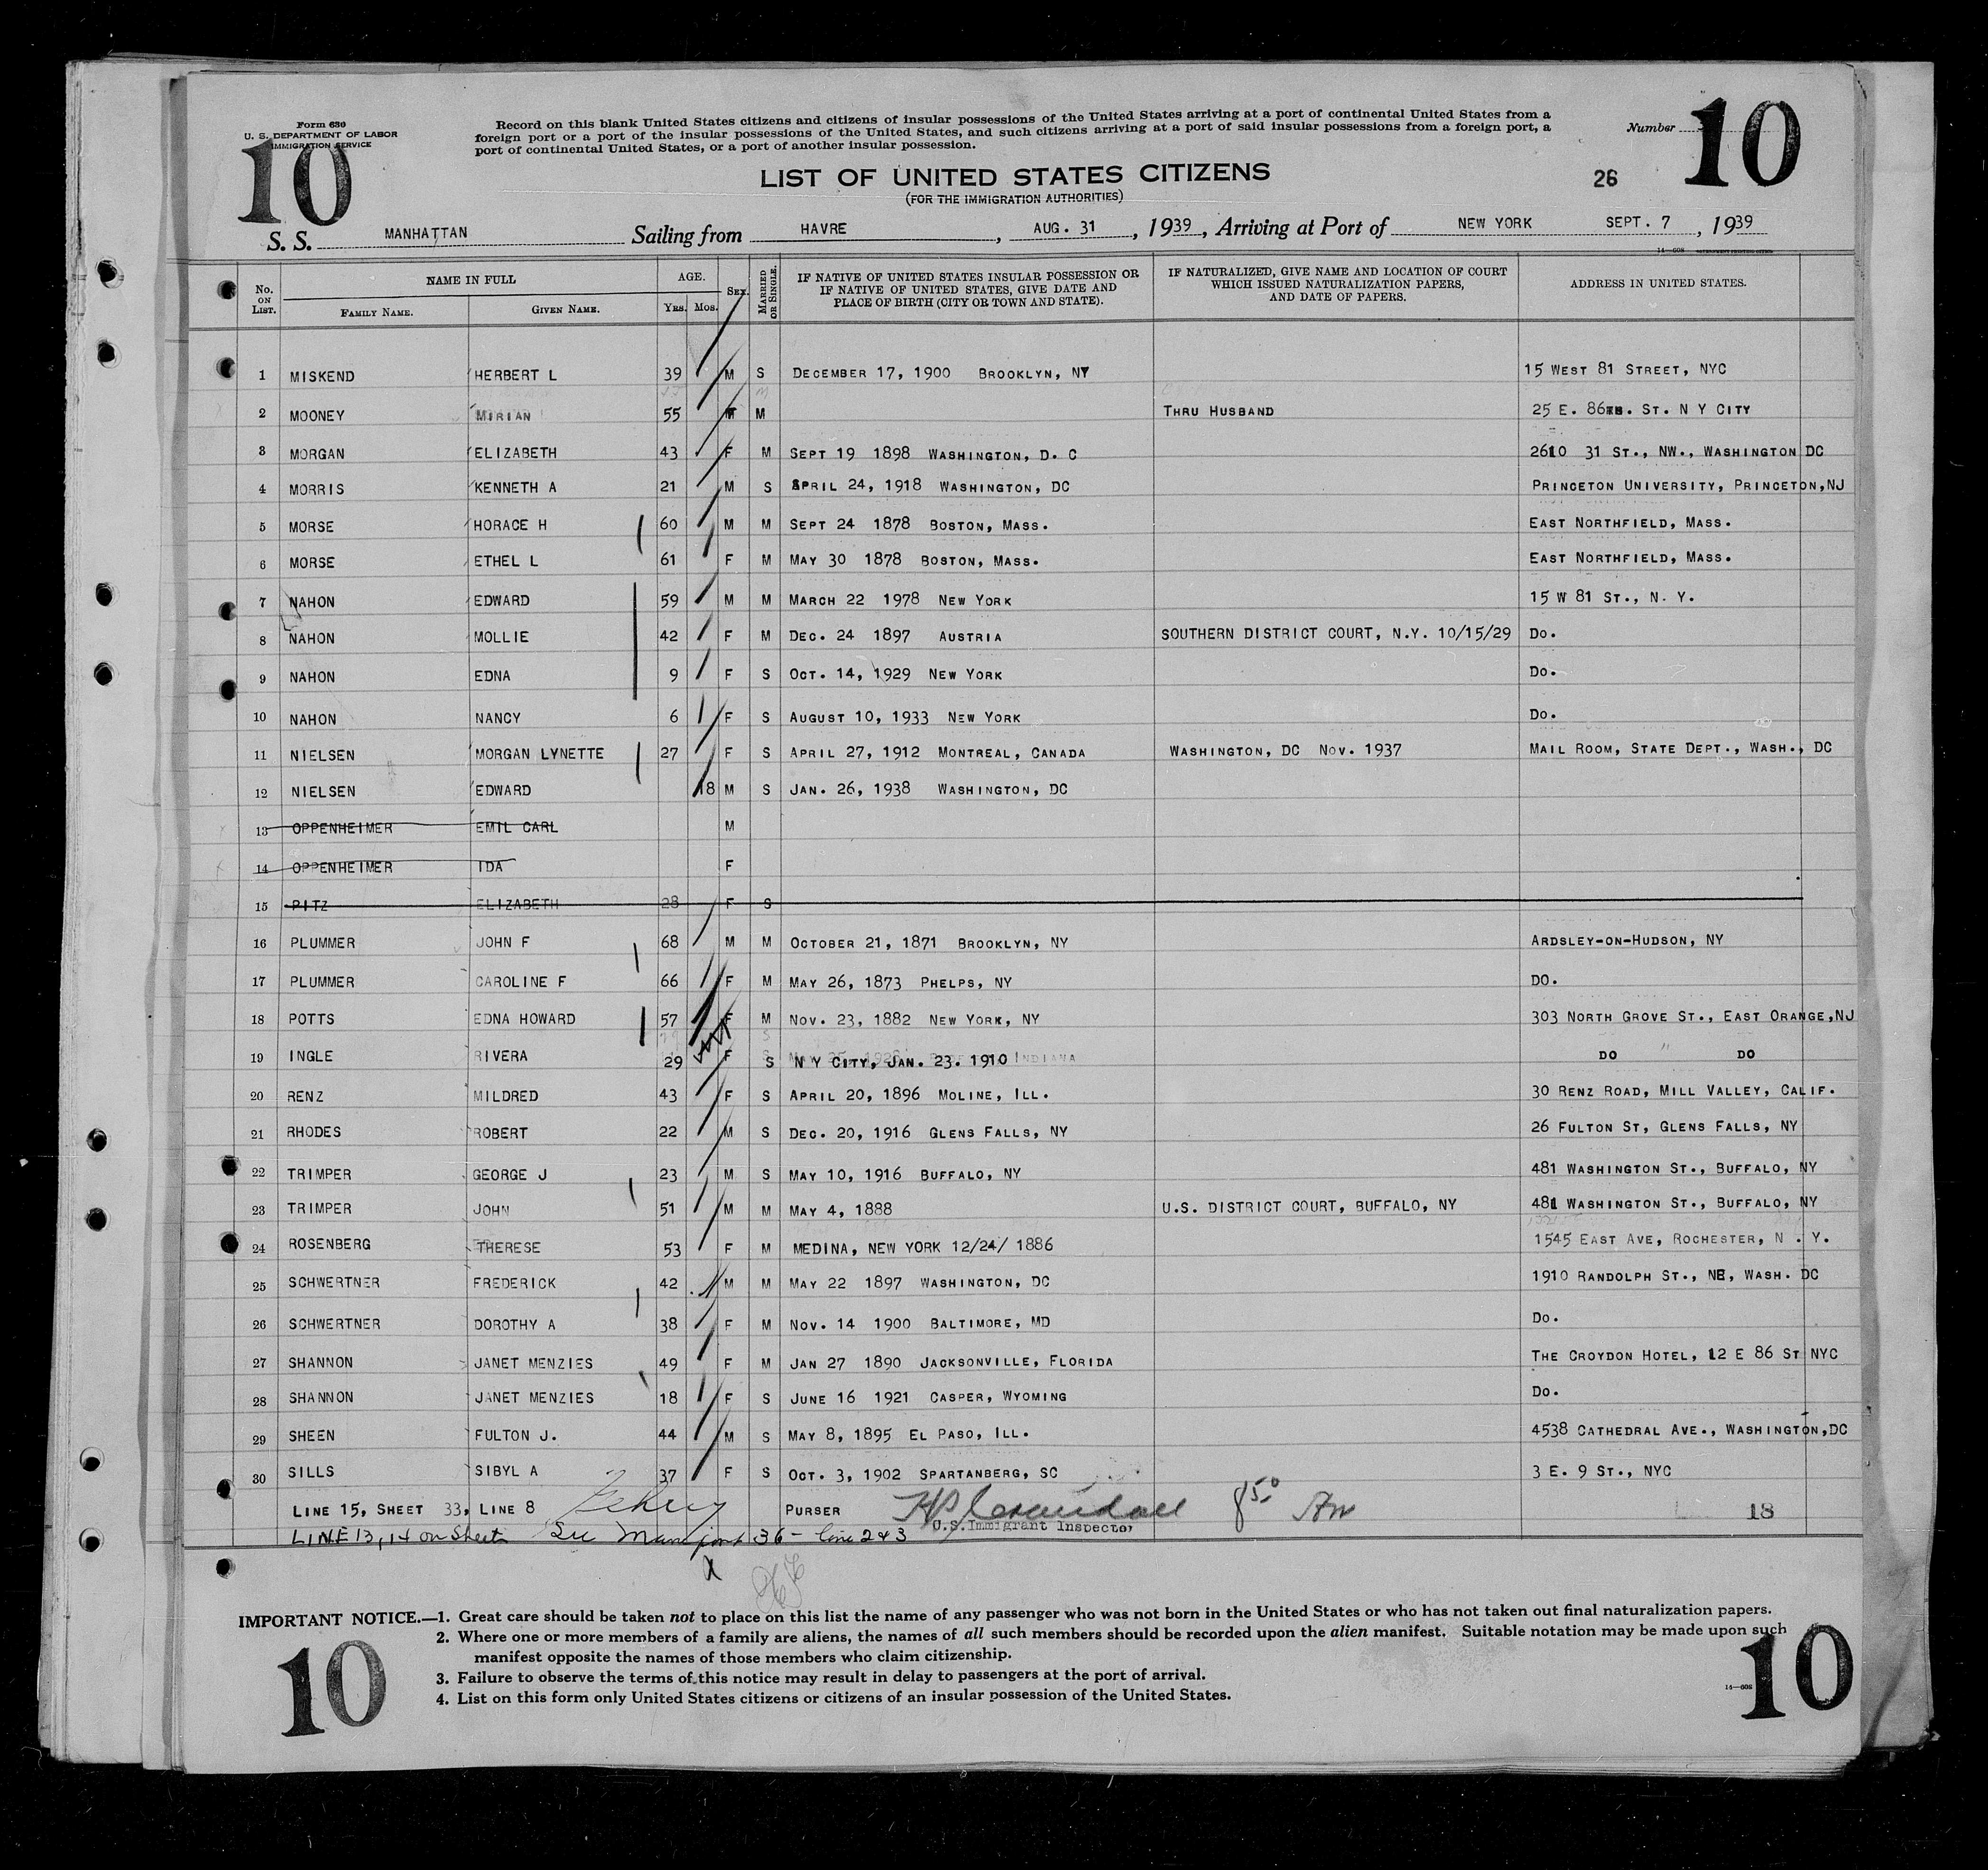 Form 630
U. S. DEPARTMENT OF LABOR
IMMIGRATION SERVICE
10
Record on this blank United States citizens and citizens of insular possessions of the United States arriving at a port of continental United States from a
foreign port or a port of the insular possessions of the United States, and such citizens arriving at a port of said insular possessions from a foreign port, a
port of continental United States, or a port of another insular possession.
Number
10
LIST OF UNITED STATES CITIZENS
26
(FOR THE IMMIGRATION AUTHORITIES)
S. S. MANHATTAN Sailing from HAVRE, AUG. 31, 1939, Arriving at Port of NEW YORK SEPT. 7, 1939
14—608
No. ON LIST. NAME IN FULL FAMILY NAME. GIVEN NAME. AGE. YRS. MOS. SEX. MARRIED OR SINGLE. IF NATIVE OF UNITED STATES INSULAR POSSESSION OR IF NATIVE OF UNITED STATES, GIVE DATE AND PLACE OF BIRTH (CITY OR TOWN AND STATE). IF NATURALIZED, GIVE NAME AND LOCATION OF COURT WHICH ISSUED NATURALIZATION PAPERS, AND DATE OF PAPERS. ADDRESS IN UNITED STATES.
1 MISKEND HERBERT L 39 M S DECEMBER 17, 1900 BROOKLYN, NY 15 WEST 81 STREET, NYC
2 MOONEY MIRIAN 55 M THRU HUSBAND 25 E. 86TH. ST. N Y CITY
3 MORGAN ELIZABETH 43 F M SEPT 19 1898 WASHINGTON, D. C 2610 31 ST., NW., WASHINGTON DC
4 MORRIS KENNETH A 21 M S APRIL 24, 1918 WASHINGTON, DC PRINCETON UNIVERSITY, PRINCETON, NJ
5 MORSE HORACE H 60 M M SEPT 24 1878 BOSTON, MASS. EAST NORTHFIELD, MASS.
6 MORSE ETHEL L 61 F M MAY 30 1878 BOSTON, MASS. EAST NORTHFIELD, MASS.
7 NAHON EDWARD 59 M M MARCH 22 1978 NEW YORK 15 W 81 ST., N. Y.
8 NAHON MOLLIE 42 F M DEC. 24 1897 AUSTRIA SOUTHERN DISTRICT COURT, N.Y. 10/15/29 DO.
9 NAHON EDNA 9 F S OCT. 14, 1929 NEW YORK DO.
10 NAHON NANCY 6 F S AUGUST 10, 1933 NEW YORK DO.
11 NIELSEN MORGAN LYNETTE 27 F S APRIL 27, 1912 MONTREAL, CANADA WASHINGTON, DC NOV. 1937 MAIL ROOM, STATE DEPT., WASH., DC
12 NIELSEN EDWARD 18 M S JAN. 26, 1938 WASHINGTON, DC
13 OPPENHEIMER EMIL CARL M
14 OPPENHEIMER IDA F
15 PITZ ELIZABETH 28 F S
16 PLUMMER JOHN F 68 M M OCTOBER 21, 1871 BROOKLYN, NY ARDSLEY-ON-HUDSON, NY
17 PLUMMER CAROLINE F 66 F M MAY 26, 1873 PHELPS, NY DO.
18 POTTS EDNA HOWARD 57 F M NOV. 23, 1882 NEW YORK, NY 303 NORTH GROVE ST., EAST ORANGE, NJ
19 INGLE RIVERA 29 F S N Y CITY, JAN. 23. 1910 INDIANA DO " DO
20 RENZ MILDRED 43 F S APRIL 20, 1896 MOLINE, ILL. 30 RENZ ROAD, MILL VALLEY, CALIF.
21 RHODES ROBERT 22 M S DEC. 20, 1916 GLENS FALLS, NY 26 FULTON ST, GLENS FALLS, NY
22 TRIMPER GEORGE J 23 M S MAY 10, 1916 BUFFALO, NY 481 WASHINGTON ST., BUFFALO, NY
23 TRIMPER JOHN 51 M M MAY 4, 1888 U.S. DISTRICT COURT, BUFFALO, NY 481 WASHINGTON ST., BUFFALO, NY
24 ROSENBERG THERESE 53 F M MEDINA, NEW YORK 12/24/ 1886 1545 EAST AVE, ROCHESTER, N . Y.
25 SCHWERTNER FREDERICK 42 M M MAY 22 1897 WASHINGTON, DC 1910 RANDOLPH ST., NE, WASH. DC
26 SCHWERTNER DOROTHY A 38 F M NOV. 14 1900 BALTIMORE, MD DO.
27 SHANNON JANET MENZIES 49 F M JAN 27 1890 JACKSONVILLE, FLORIDA THE CROYDON HOTEL, 12 E 86 ST NYC
28 SHANNON JANET MENZIES 18 F S JUNE 16 1921 CASPER, WYOMING DO.
29 SHEEN FULTON J. 44 M S MAY 8, 1895 EL PASO, ILL. 4538 CATHEDRAL AVE., WASHINGTON, DC
30 SILLS SIBYL A 37 F S OCT. 3, 1902 SPARTANBERG, SC 3 E. 9 ST., NYC
LINE 15, SHEET 33, LINE 8 PURSER 850 18
U.S. Immigrant Inspector
LINE 13, 14 on Sheet See Manifest 36 - line 2 & 3
IMPORTANT NOTICE.—1. Great care should be taken not to place on this list the name of any passenger who was not born in the United States or who has not taken out final naturalization papers.
2. Where one or more members of a family are aliens, the names of all such members should be recorded upon the alien manifest. Suitable notation may be made upon such
manifest opposite the names of those members who claim citizenship.
3. Failure to observe the terms of this notice may result in delay to passengers at the port of arrival.
4. List on this form only United States citizens or citizens of an insular possession of the United States.
14—608
10
10